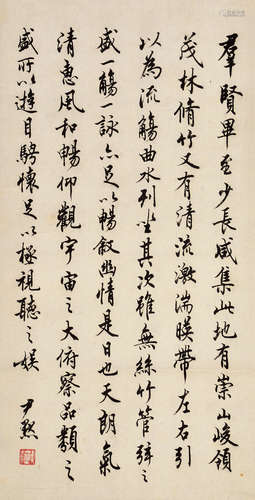 羣賢畢至少長咸集此地有崇山峻領
茂林脩竹又有清流激湍暎帶左右引
以為流觴曲水列坐其次雖無絲竹管弦之
盛一觴一詠亦足以暢敘幽情是日也天朗氣
清惠風和暢仰觀宇宙之大俯察品類之
盛所以遊目騁懷足以極視聽之娛 尹默